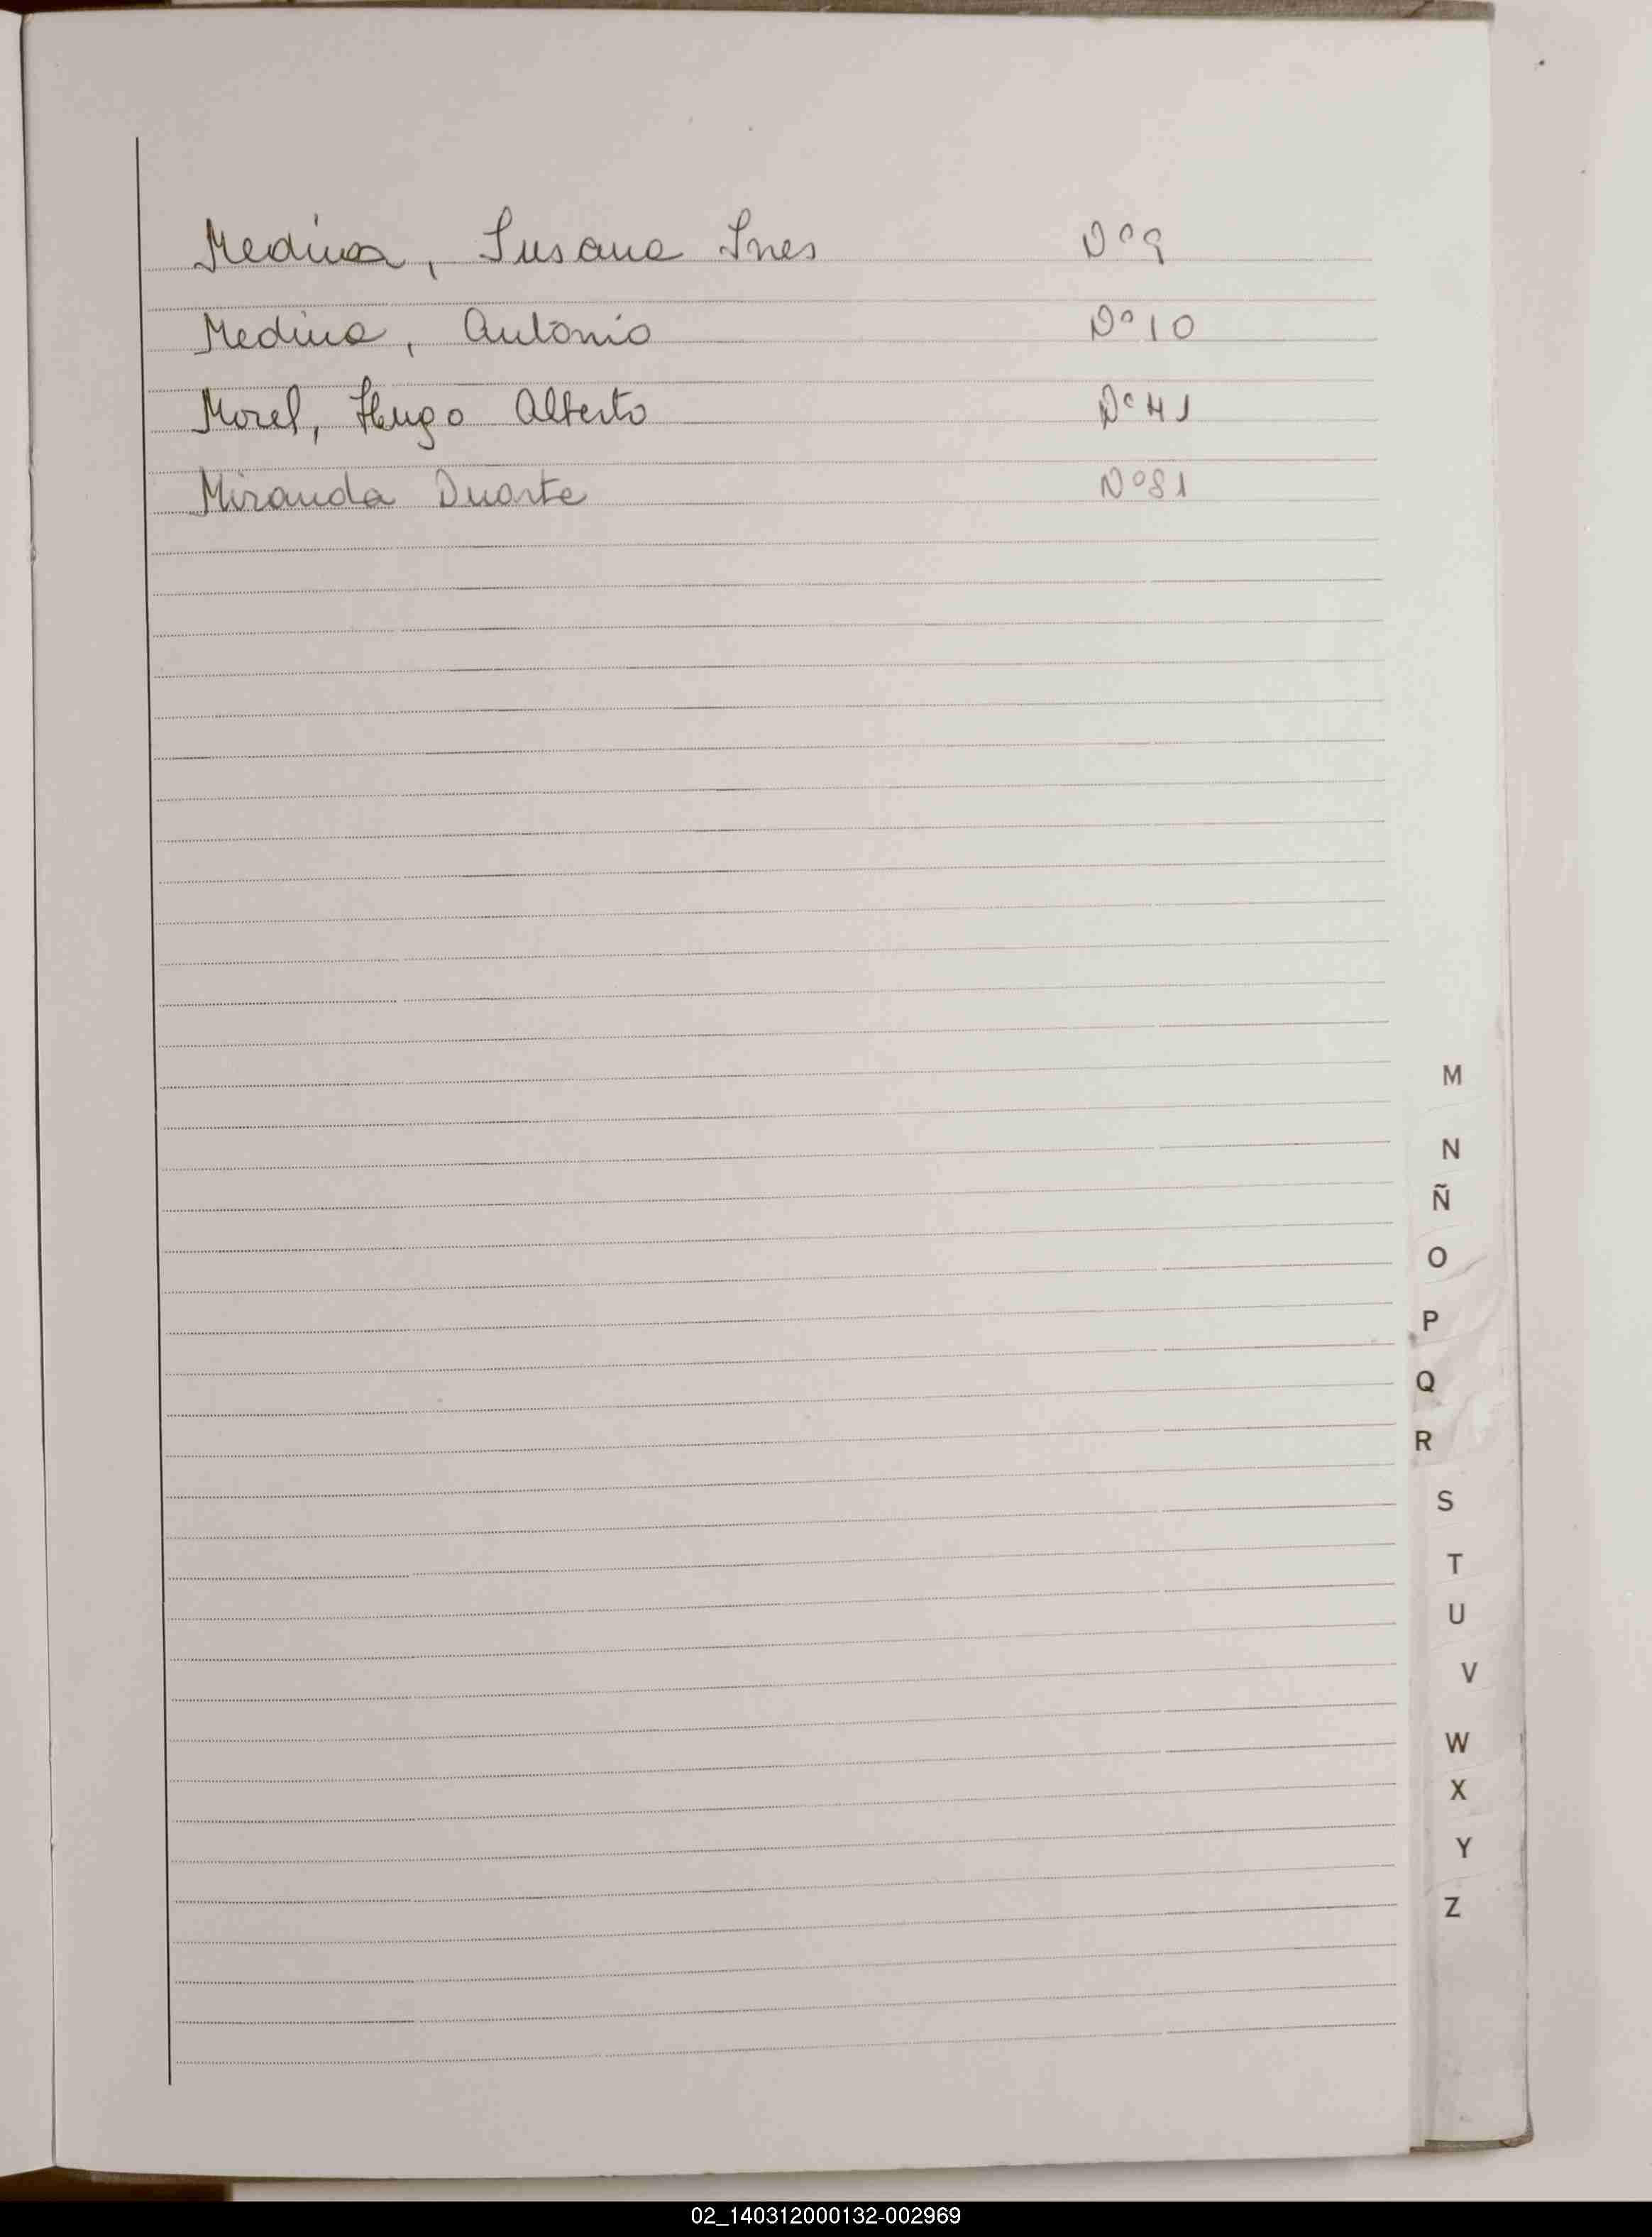 Medina, Susana Ines N° 9
Medina, Antonio N° 10
Morel, Hugo Alberto N° 41
Miranda Duarte N° 81
M
N
Ñ
O
P
Q
R
S
T
U
V
W
X
Y
Z
02_140312000132-002969